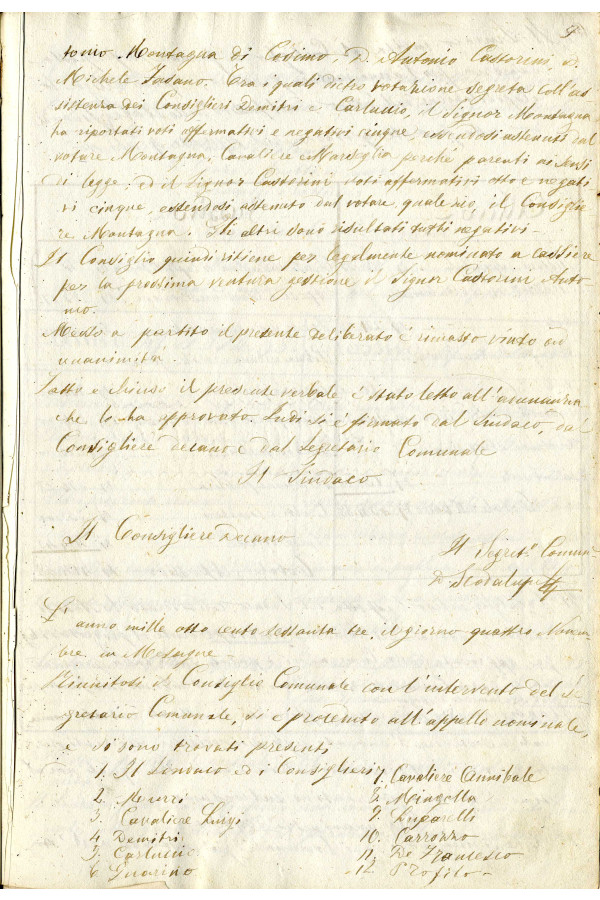 9
tonio Montagna di Cosimo, D. Antonio Castorini, e
Michele Fasano. Tra i quali dietro votazione segreta coll'as
sistenza dei Consiglieri Demitri e Carluccio, il Signor Montagna
ha riportati voti affermativi e negativi cinque, essendosi astenuti dal
votare Montagna, Cavaliere e Marseglia perché parenti ai sensi
di legge. ed il Signor Castorini voti affermativi otto e negati
vi cinque, essendosi astenuto dal votare, quale zio, il Consiglie
re Montagna. Gli altri sono risultati tutti negativi.
Il Consiglio quindi ritiene per legalmente nominato a cassiere
per la prossima ventura gestione il Signor Castorini Anto
nio.
Messo a partito il presente deliberato è rimasto vinto ad
unanimità.
Fatto e chiuso il presente verbale è stato letto all'adunanza
che lo ha approvato. Indi si è firmato dal Sindaco, dal
Consigliere decano e dal Segretario Comunale
Il Sindaco
Il Consigliere Decano
Il Segret.º Comun.
L'
anno mille otto cento sessanta tre, il giorno quattro Novem
bre in Mesagne -
Riunitosi il Consiglio Comunale con l'intervento del Se
gretario Comunale, si è proceduto all'appello nominale,
e si sono trovati presenti
1. Il Sindaco ed i Consiglieri
2. Murri
3. Cavaliere Luigi
4. Demitri
5. Carluccio
6. Guarino
7. Cavaliere Annibale
8. Mingolla
9. Luparelli
10. Carrozzo
11. De Francesco
12. Profilo -